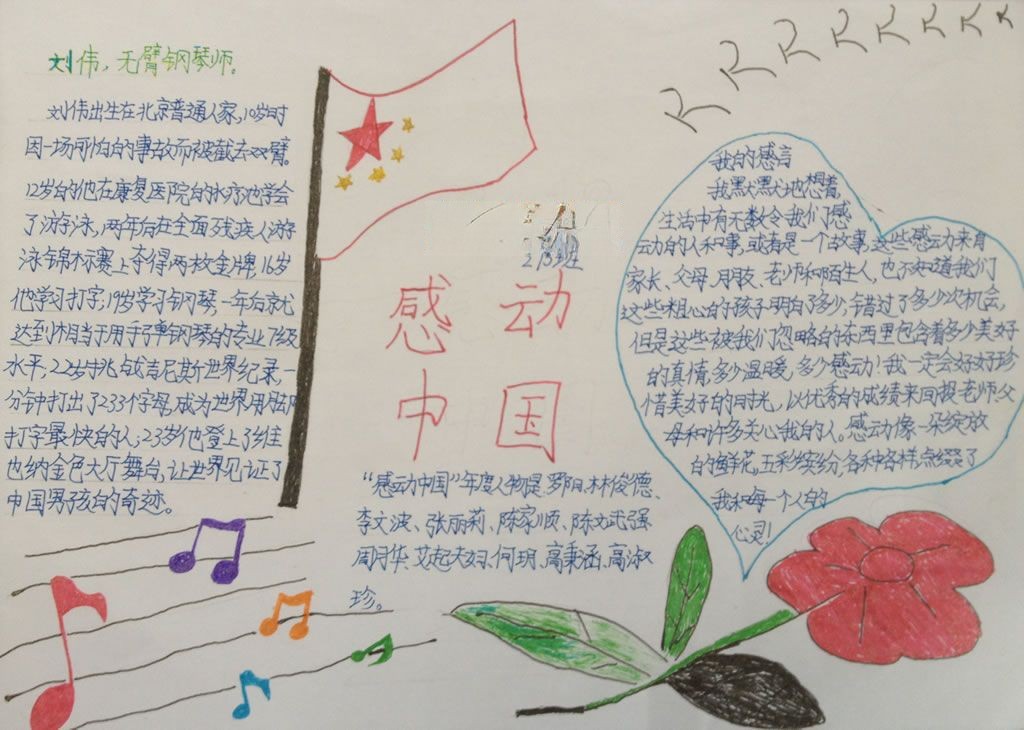 刘伟，无臂钢琴师。
刘伟出生在北京普通人家，10岁时
因一场可怕的事故而被截去双臂。
12岁的他在康复医院的水疗池学会
了游泳，两年后在全面残疾人游
泳锦标赛上夺得两枚金牌16岁
他学习打字，19岁学习钢琴，一年后就
达到相当于用手弹钢琴的专业7级
水平，22岁挑战吉尼斯世界纪录，一
分钟打出了233个字母，成为世界用脚
打字最快的人；23岁他登上了维
也纳金色大厅舞台，让世界见证了
中国男孩的奇迹。
感动
中国
“感动中国”年度人物是罗阳、林俊德、
李文波、张丽莉、陈家顺、陈斌强
周月华、艾起夫妇、何玥、高秉涵、高淑
珍。
我的感言
我默默地想着，
生活中有无数令我们感
动的人和事，或者是一个故事，这些感动来自
家长、父母、朋友、老师和陌生人，也不知道我们
这些粗心的孩子明白了多少，错过了多少次机会，
但是这些被我们忽略的东西里包含着多少美好
的真情，多少温暖，多少感动！我一定会好好珍
惜美好的时光，以优秀的成绩来回报老师父
母和许多关心我的人。感动像一朵绽放
的鲜花，五彩缤纷，各种各样，点缀了
我和每一个人的
心灵！